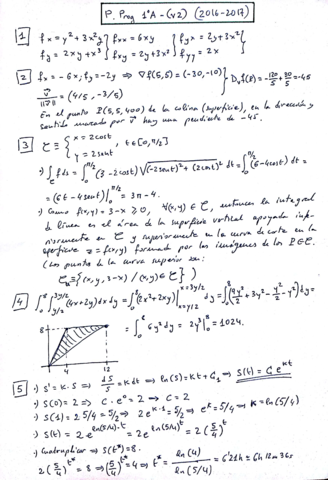 P. Prog 1ºA - (v2) (2016-2017)
1 fx = y² + 3x²y } fxx = 6xy } fyx = 2y + 3x² }
fy = 2xy + x³ } fxy = 2y + 3x² } fyy = 2x }
2 fx = -6x; fy = -2y ⇒ ∇f(5,5) = (-30,-10) } Dᵥf(P) = -120/5 + 30/5 =
v/‖v‖ = (4/5, -3/5)
En el punto P(5,5,400) de la colina (superficie), en la dirección y
sentido marcado por v hay una pendiente de
3 C ≡ { x = 2cost
y = 2sent , t ∈ [0, π/2]
·) ∫ f ds = ∫₀^{π/2} (3 - 2cost) √((-2sent)² + (2cost)²) dt = ∫₀^{π/2} (6 - 4cost) dt =
= (6t - 4sent)|₀^{π/2} = 3π - 4.
·) Como f(x,y) = 3-x ≥ 0, ∀(x,y) ∈ C, entonces la integral
de línea es el área de la superficie vertical apoyada inferiormente en C y superiormente en la curva de corte en la
superficie z = f(x,y) formada por las imágenes de los P∈C.
(Los puntos de la curva superior son:
{(x, y, 3-x) / (x,y) ∈ C} )
4 ∫₀⁸ ∫_{y/2}^{3y/2} (4x + 2y) dx dy = ∫₀⁸ (2x² + 2xy)|_{x=y/2}^{x=3y/2} dy = ∫₀⁸ (9y²/2 + 3y² - y²/2 - y²) dy =
= ∫₀⁸ 6y² dy = 2y³|₀⁸ = 1024.
8
4 12
5 ·) S' = K·S ⇒ dS/S = K dt ⇒ ln(S) = Kt + C₁ ⇒ S(t) = C e^{Kt}
·) S(0) = 2 ⇒ C·e⁰ = 2 ⇒ C = 2
·) S(1) = 2 5/4 = 5/2 ⇒ 2e^{K·1} = 5/2 ⇒ e^K = 5/4 ⇒ K = ln(5/4)
·) S(t) = 2 e^{ln(5/4)·t} = 2 e^{ln(5/4)^t} = 2 (5/4)^t
·) Cuadruplicar ⇒ S(t*) = 8.
2(5/4)^{t*} = 8 ⇒ (5/4)^{t*} = 4 ⇒ t* = ln(4)/ln(5/4) = 6'21h ≡ 6h 12m 36s